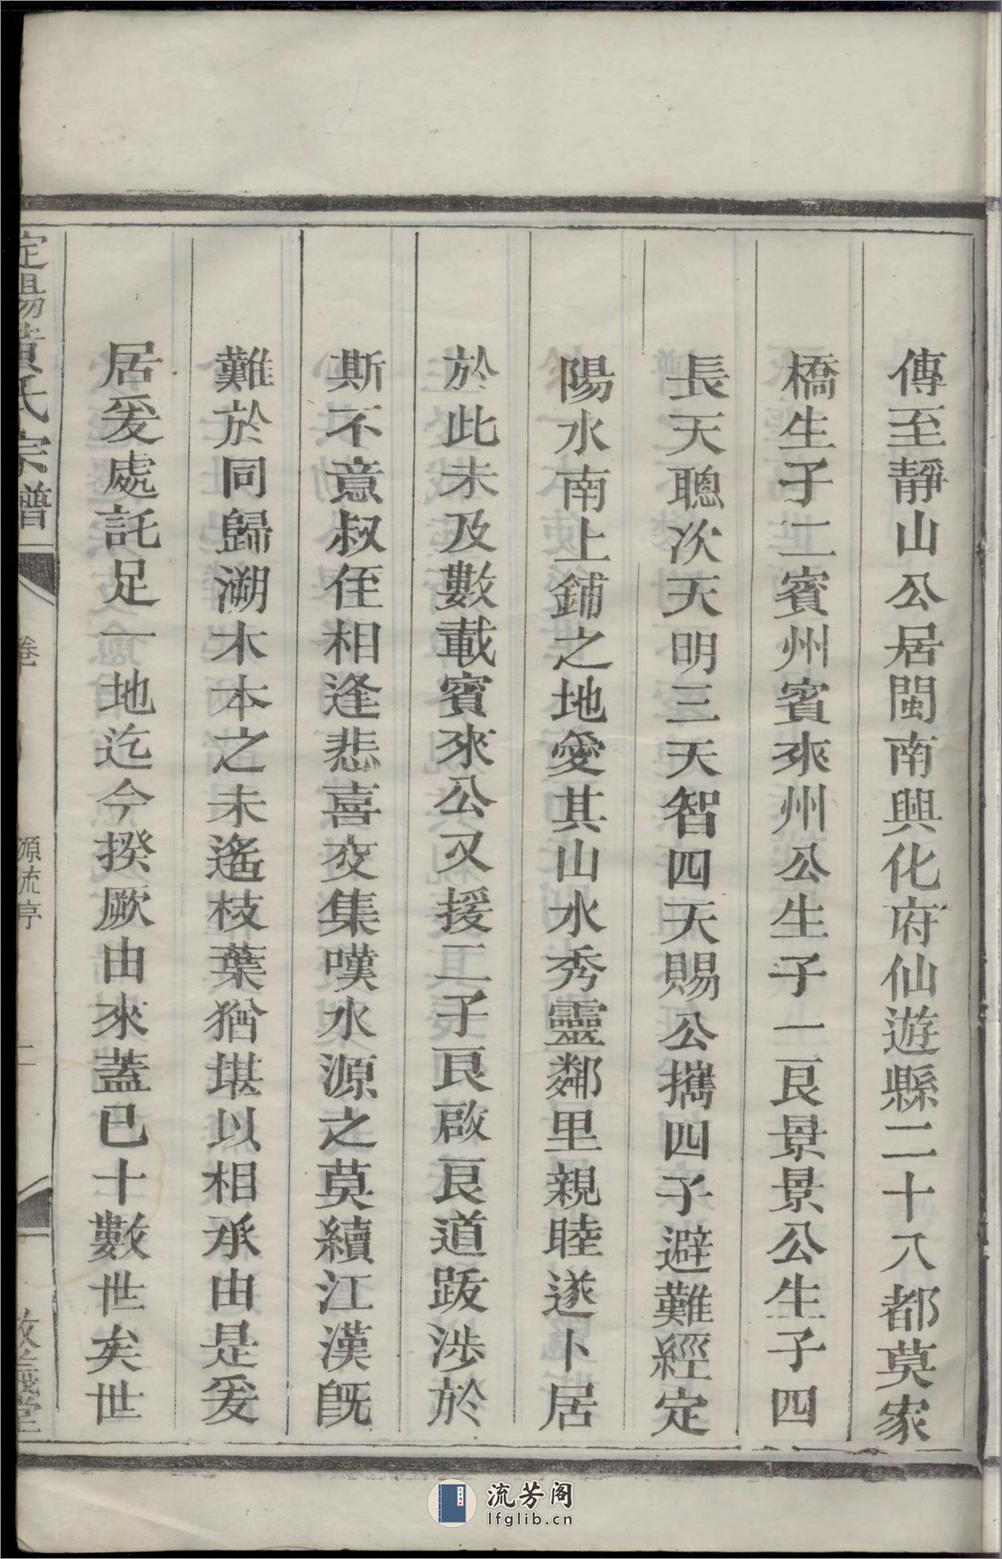 傳至靜山公居閩南興化府仙遊縣二十八都莫家
橋生子二賓州賓來州公生子一艮景景公生子四
長天聰次天明三天智四天賜公攜四子避難經定
陽水南上鋪之地愛其山水秀靈鄰里親睦遂卜居
於此未及數載賓來公又援二子艮啟艮道跋涉於
斯不意叔侄相逢悲喜交集嘆水源之莫續江漢既
難於同歸溯木本之未遙枝葉猶堪以相承由是爰
居爰處託足一地迄今揆厥由來蓋已十數世矣世
定陽黃氏宗譜
卷
源流序
二
敦堂
流芳阁
lfglib.cn